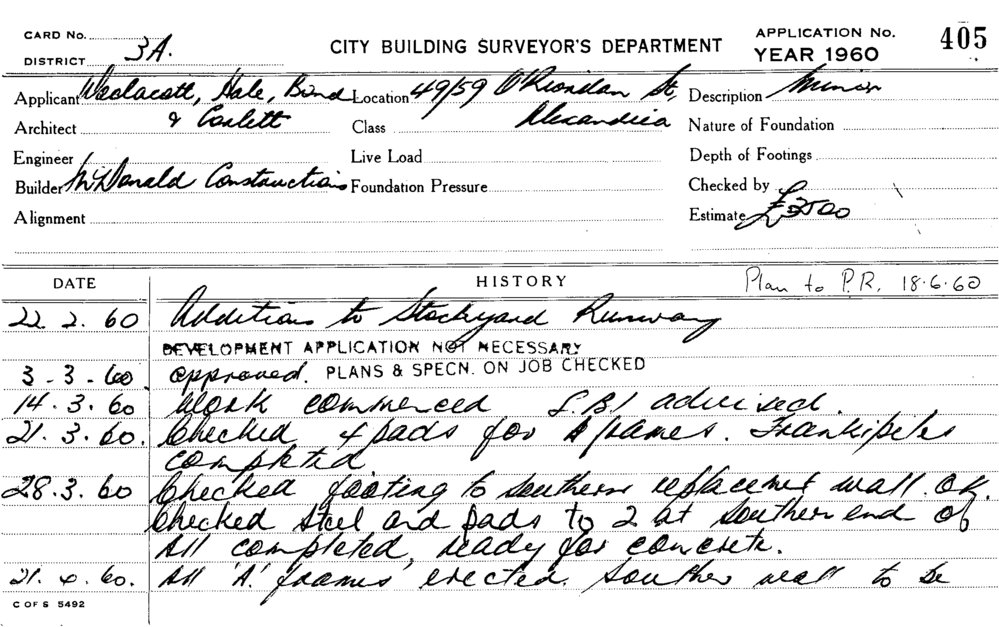 CARD No.
DISTRICT 3A.
CITY BUILDING SURVEYOR'S DEPARTMENT
APPLICATION No. 405
YEAR 1960
Applicant Woolacott, Hale, Bond Location 49/59 O'Riordan St, Description Minor
Architect & Corlett Class Alexandria Nature of Foundation
Engineer Live Load Depth of Footings
Builder McDonald Constructions Foundation Pressure Checked by
Alignment Estimate £3500
DATE HISTORY Plan to P.R. 18.6.60
22 2. 60 Additions to Stockyard Runway
DEVELOPMENT APPLICATION NOT NECESSARY
3-3-60 approved. PLANS & SPECN. ON JOB CHECKED
14.3.60 Work commenced S.B.I advised.
21.3.60. Checked 4 pads for A frames. Frankipiles
completed
28.3.60 Checked footing to southern replacement wall. OK.
Checked steel and pads to 2 at southern end OK
All completed, ready for concrete.
21.4.60. All 'A' frames erected. Souther wall to be
C OF S 5492